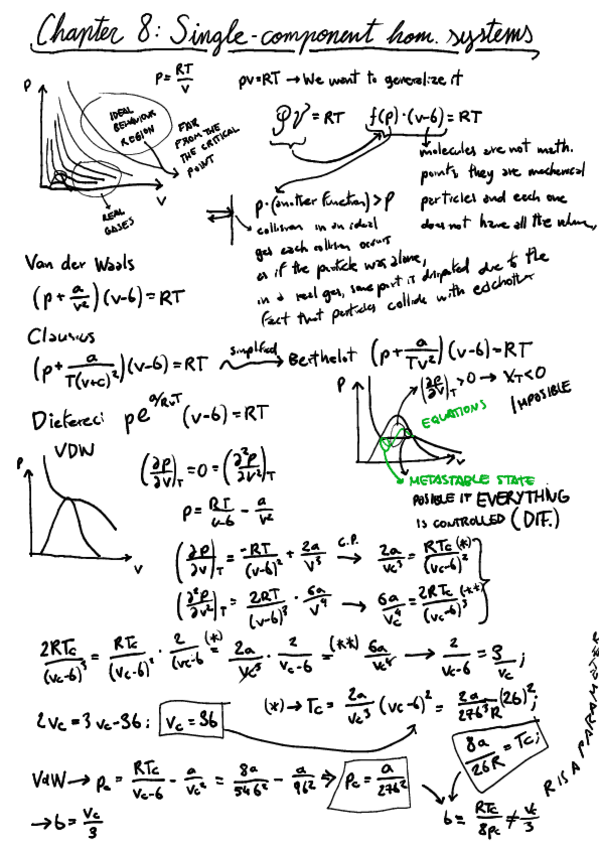 Chapter 8: Single-component hom. systems
P = RT/V
pv = RT → We want to generalize it
P
IDEAL BEHAVIOUR REGION
FAR FROM THE THE CRITICAL POINT
REAL GASES
V
Pv = RT    f(p)·(v-b) = RT
molecules are not math.
points, they are mechanical
particles and each one
does not have all the volume,
p·(another function) > p
collision in an ideal
gas each collision occurs
as if the particle was alone,
in a real gas, some part is dissipated due to the
fact that particles collide with eachother
Van der Waals
(p + a/v²)(v-b) = RT
Clausius
(p + a/T(v+c)²)(v-b) = RT simplified → Berthelot (p + a/Tv²)(v-b) = RT
Dieterici pe^a/RvT (v-b) = RT
P
(∂p/∂v)_T > 0 → χ_T < 0
IMPOSIBLE
EQUATIONS
V
METASTABLE STATE
POSIBLE IF EVERYTHING
IS CONTROLLED (DIF.)
VDW
P
V
(∂p/∂v)_T = 0 = (∂²p/∂v²)_T
p = RT/v-b - a/v²
(∂p/∂v)_T = -RT/(v-b)² + 2a/v³ C.P. → 2a/vc³ = RTc/(vc-b)² (*)
(∂²p/∂v²)_T = 2RT/(v-b)³ · 6a/v⁴ → 6a/vc⁴ = 2RTc/(vc-b)³ (**)
2RTc/(vc-b)³ = RTc/(vc-b)² · 2/(vc-b =(*) 2a/vc³ · 2/vc-b =(**) 6a/vc⁴ → 2/vc-b = 3/vc;
2vc = 3vc - 3b; vc = 3b
(*) → Tc = 2a/vc³ (vc-b)² = 2a/27b³R (2b)²;
8a/26R = Tc;
VdW → pc = RTc/vc-b - a/vc² = 8a/54b² - a/9b² ⇒ pc = a/27b²
→ b = vc/3
b = RTc/8pc ≠ vc/3
R IS A PARAMETER